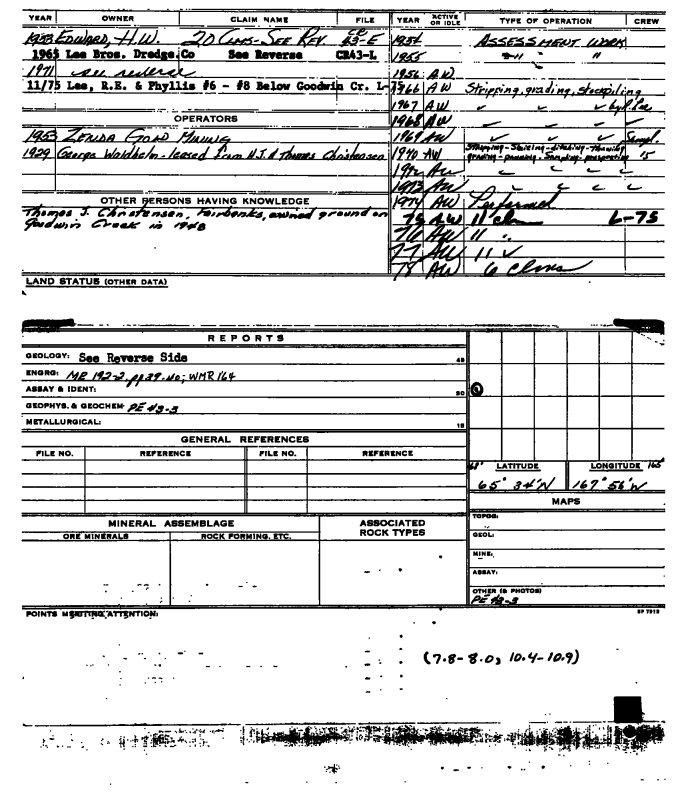 YEAR OWNER CLAIM NAME FILE YEAR ACTIVE OR IDLE TYPE OF OPERATION CREW
1953 EDWARD, H.W. 20 Clms - See Rev 43-E 1954 ASSESSMENT WORK
1965 Lee Bros. Dredge Co See Reverse CR43-L 1955 " "
1971 see reverse 1956 AW
11/75 Lee, R.E. & Phyllis #6 - #8 Below Goodwin Cr. L- 1966 AW Stripping, grading, stockpiling
1967 AW ✓ ✓ ✓ by R. Lee
OPERATORS 1968 AW ✓ ✓ ✓
1953 ZENDA GOLD MINING 1969 AW ✓ ✓ ✓
1929 George Waldhelm - leased from N.J. & Thomas Christensen 1970 AW Stripping - Sluicing - ditching - Thawing 15
grading - panning. Sampling, prospecting
1972 AW
1973 AW
OTHER PERSONS HAVING KNOWLEDGE 1974 AW Performed
Thomas J. Christensen, Fairbanks, owned ground on 75 AW 11 clm 6-75
Goodwin Creek in 1948 76 AW 11 "
77 AW 11 ✓
78 AW 6 Clms
LAND STATUS (OTHER DATA)
REPORTS
GEOLOGY: See Reverse Side 45
ENGRG: MR 192-2, pp 39-40; WMR 164
ASSAY & IDENT: 30
GEOPHYS. & GEOCHEM: PE 43-3
METALLURGICAL: 15
GENERAL REFERENCES
FILE NO. REFERENCE FILE NO. REFERENCE
LATITUDE LONGITUDE 165°
65° 34'N 167° 56'W
MAPS
MINERAL ASSEMBLAGE ASSOCIATED ROCK TYPES
ORE MINERALS ROCK FORMING, ETC.
TOPOG:
GEOL:
MINE:
ASSAY:
OTHER (& PHOTOS)
PE 43-3
POINTS MERITING ATTENTION:
(7.8-8.0, 10.4-10.9)